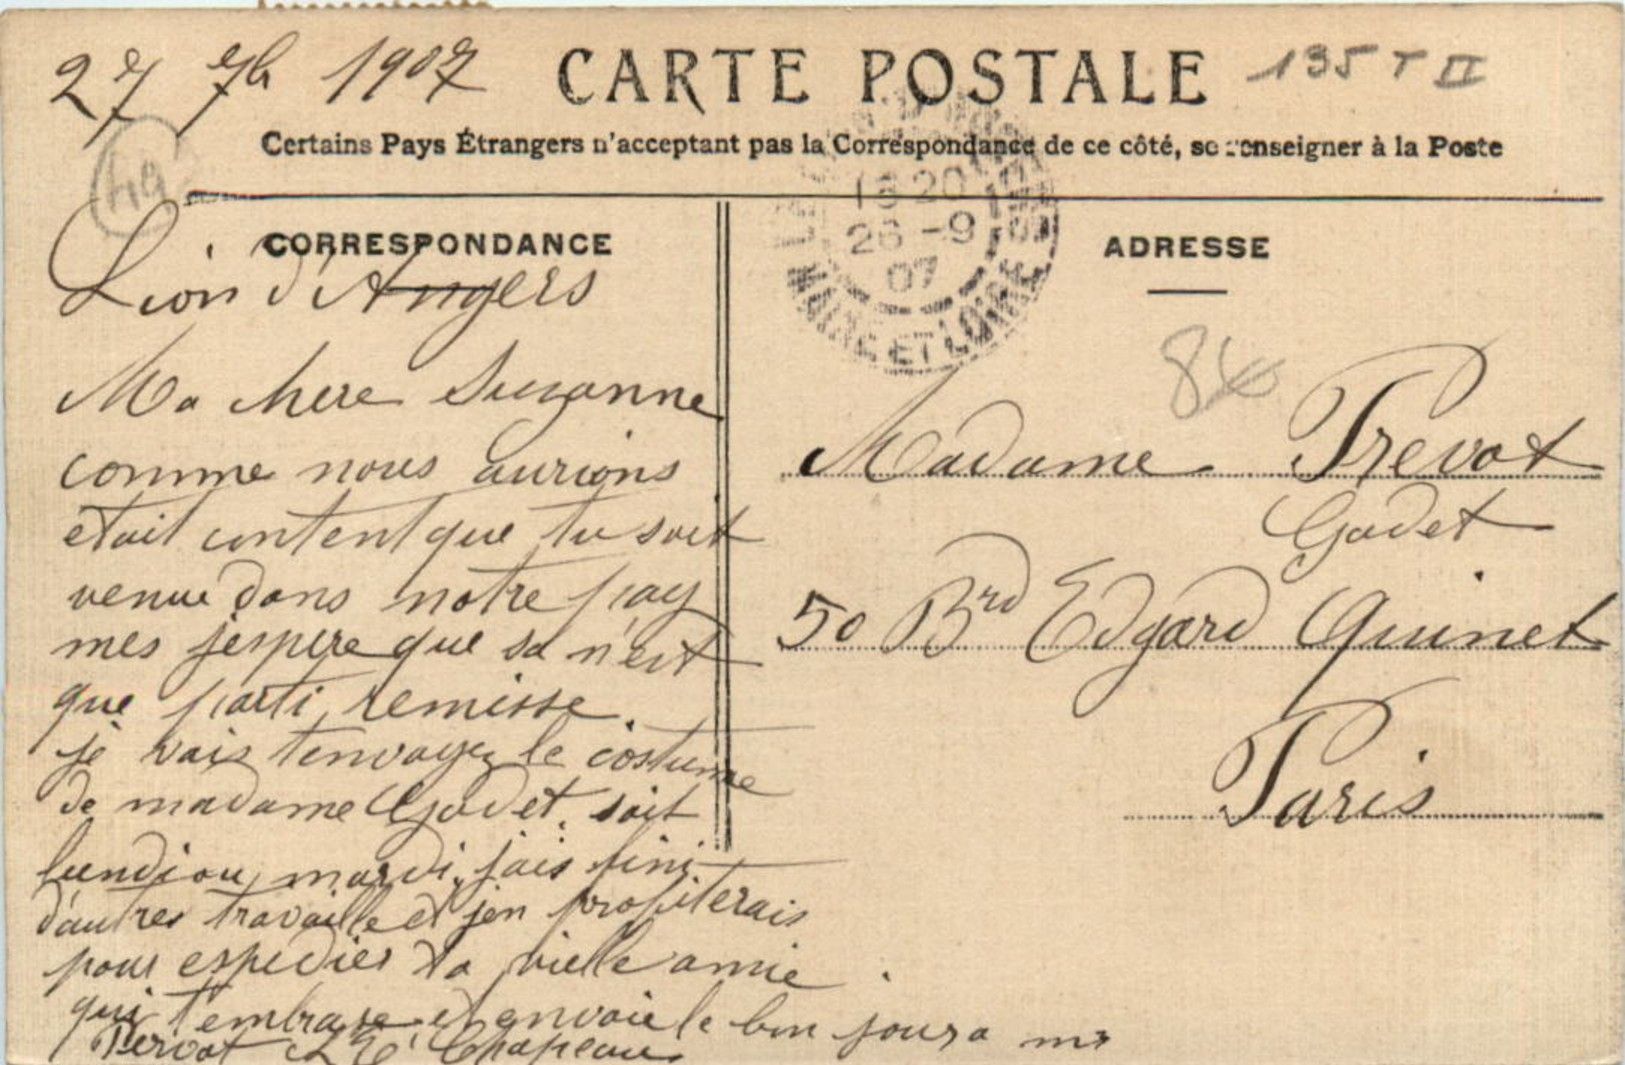 27 7b 1907
CARTE POSTALE
135 T II
Certains Pays Étrangers n'acceptant pas la Correspondance de ce côté, se renseigner à la Poste
49
18 20
26 -9
07
MAINE ET LOIRE
CORRESPONDANCE
Lion d'Angers
Ma chere Suzanne
comme nous aurions
etait content que tu soit
venue dans notre pay
mes jespere que sa n'est
que parti remisse.
je vais tenvoyez le costume
de madame Godet. soit
lundi ou mardi, jais fini
d'autres travaille et jen profiterais
pour espedier ta vielle amie
qui t'embrase et envoie le bon jour a mr
Pervot Chapeau
ADRESSE
Madame Prevot
Godet
50 Brd Edgard Quinet
Paris